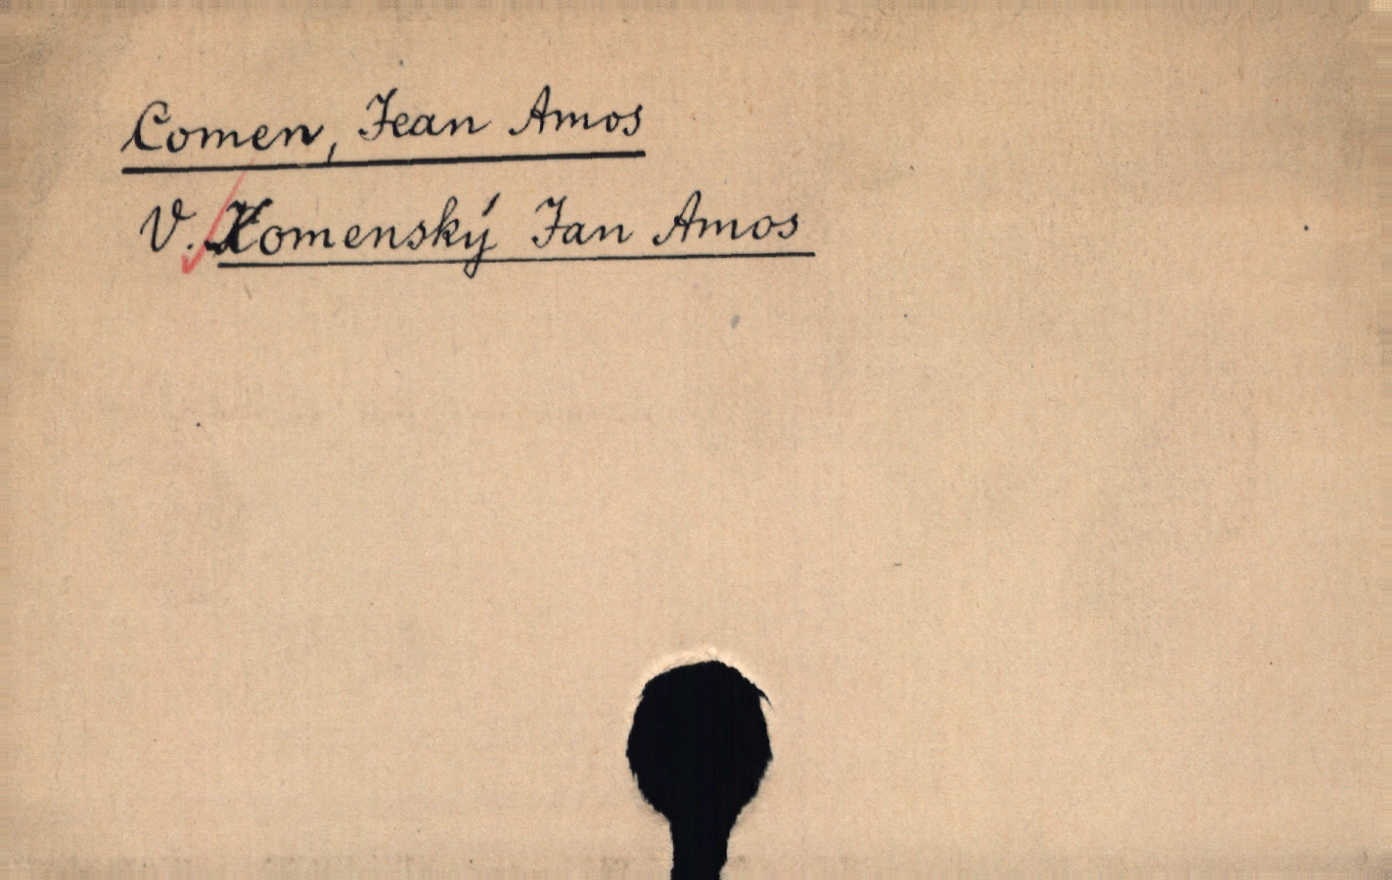 Comen, Jean Amos
V. Komenský Jan Amos